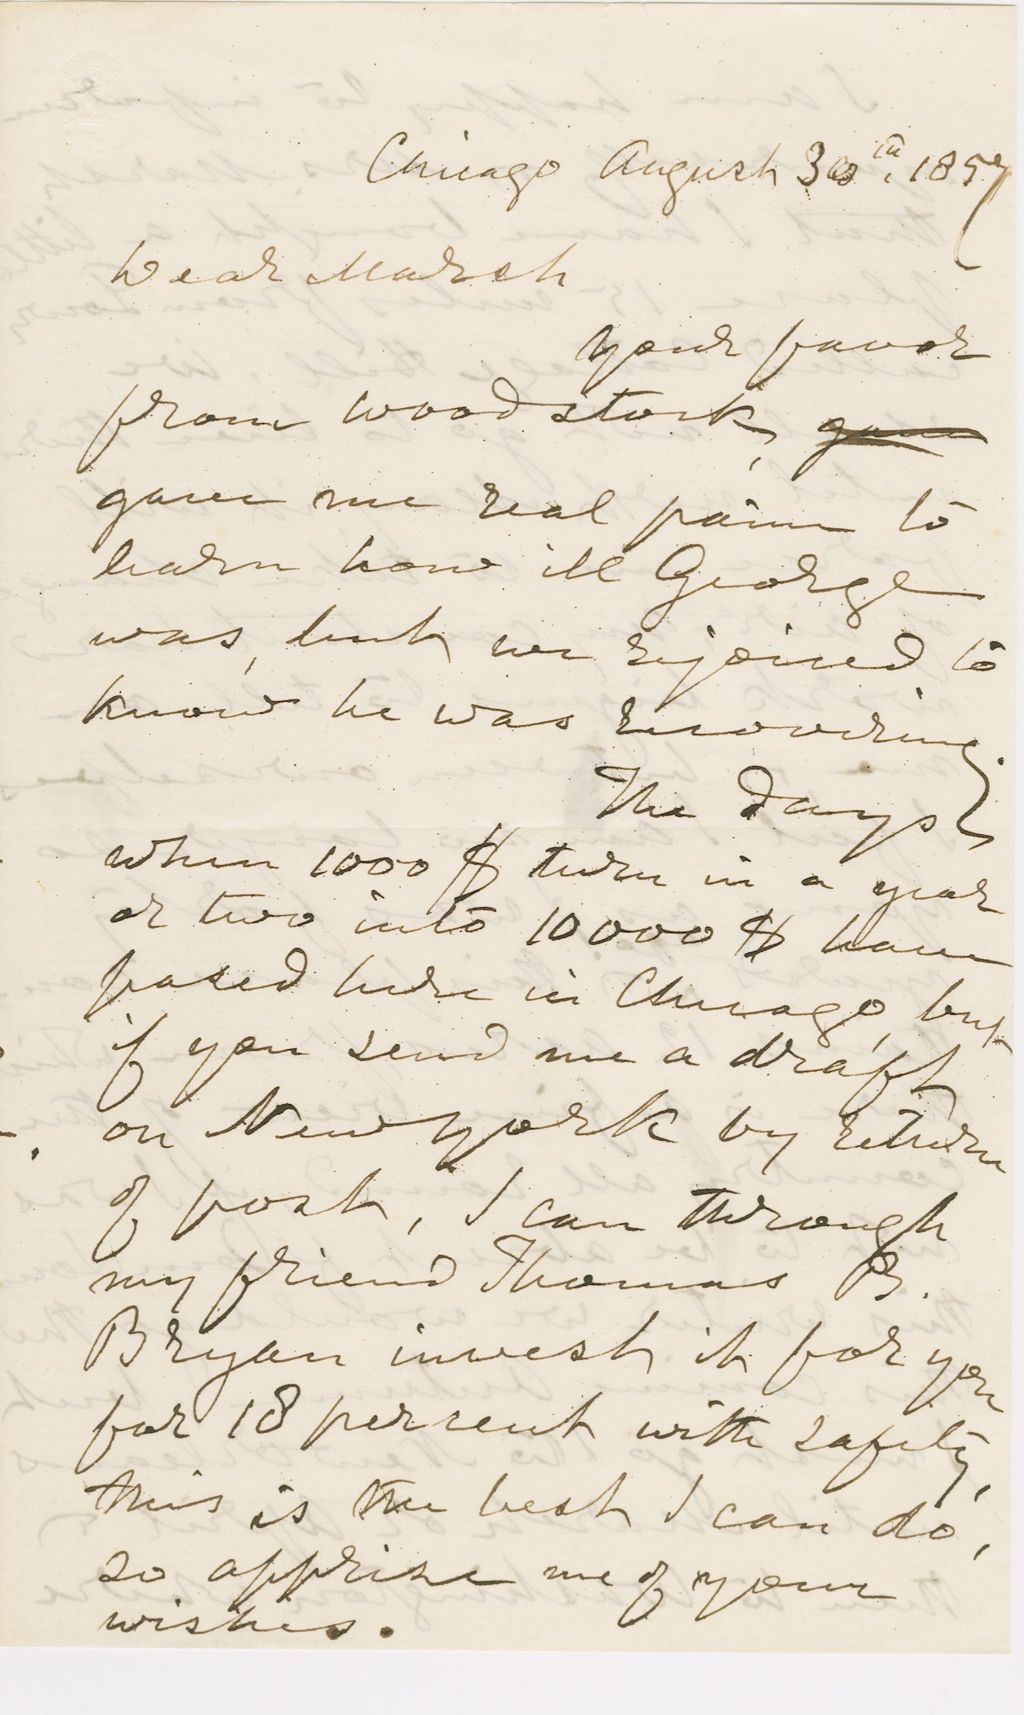 Chicago August 30th, 1857
Dear Marsh
your favor
from Woodstock, gave
gave me real pain to
learn how ill George
was, but we rejoiced to
know he was recovering.
The days
when 1000 $ turn in a year
or two into 10000 $ have
passed here in Chicago, but
if you send me a draft
on New York by return
of post, I can through
my friend Thomas B.
Bryan invest it for you
for 18 per cent with safety,
this is the best I can do,
so apprise me of your
wishes.